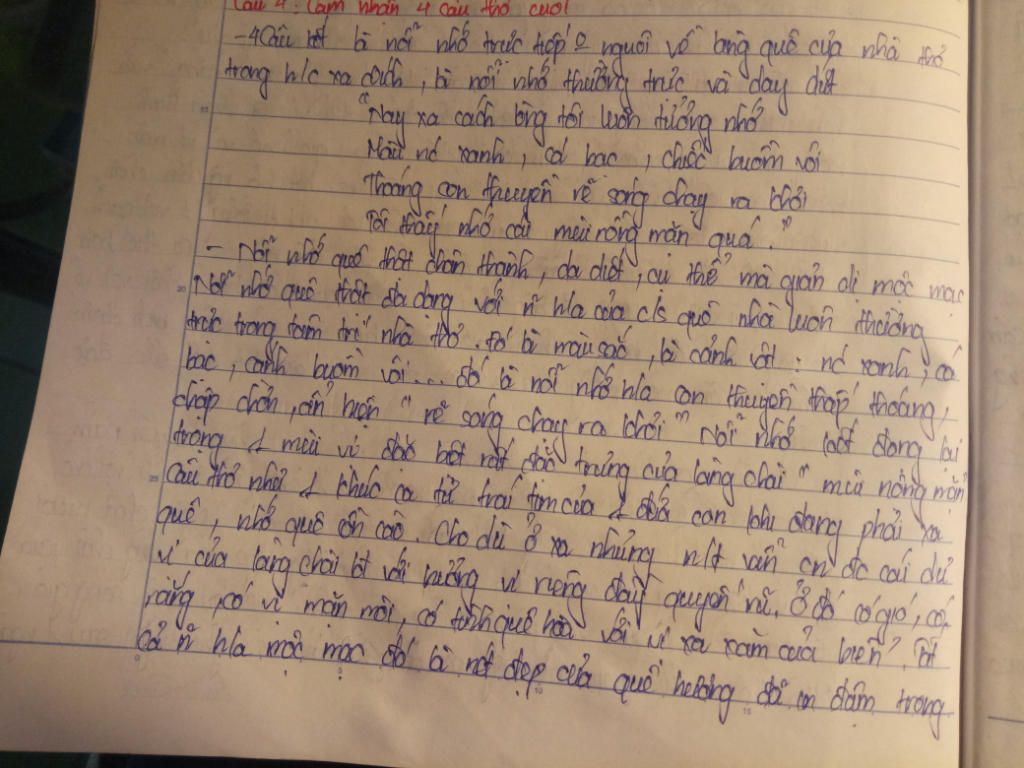 Câu 4: Cảm nhận 4 câu thơ cuối
- 4 câu kết là nỗi nhớ trực tiếp người về làng quê của nhà thơ
trong h/c xa cách, là nỗi nhớ thường trực và day dứt
"Nay xa cách lòng tôi luôn tưởng nhớ
Màu nc xanh, cá bạc, chiếc buồm vôi
Thoáng con thuyền rẽ sóng chạy ra khơi
Tôi thấy nhớ cái mùi nồng mặn quá."
- Nỗi nhớ quê thật chân thành, da diết, cụ thể mà giản dị mộc mạc
Nỗi nhớ quê thật đa dạng với h/a của c/s quê nhà luôn thường
trực trong tâm trí nhà thơ. Đó là màu sắc, là cảnh vật: nc xanh, cá
bạc, cánh buồm vôi... đó là nỗi nhớ h/a con thuyền thấp thoáng,
chập chờn, ẩn hiện "rẽ sóng chạy ra khơi" Nỗi nhớ đọng lại
trong 1 mùi vị đặc biệt rất đặc trưng của làng chài "mùi nồng mặn"
Câu thơ như 1 khúc ca từ trái tim của 1 đứa con khi đang phải xa
quê, nhớ quê cồn cào. Cho dù ở xa nhưng vẫn cn đc cái dư
vị của làng chài với hương vị riêng đầy quyến rũ. Ở đó có gió, có
nắng, có vị mặn mòi, có tình quê hòa với vị xa xăm của biển. Tất
cả h/a mộc mạc đó là nét đẹp của quê hương đã in đậm trong